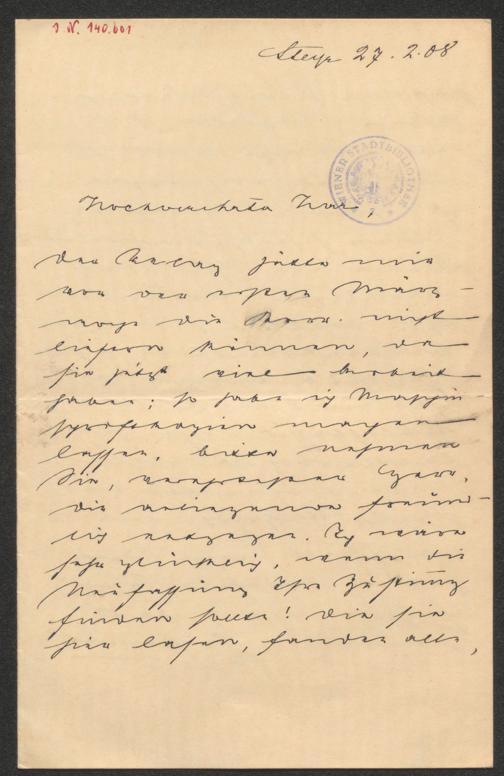 I N. 140.601
Steyr 27.2.08
WIENER STADTBIBLIOTHEK
Hochverehrter Herr,
Der Verlag hätte mir
vor der ersten März-
woche die Korr. nicht
liefern können, da
sie jetzt viel Arbeit
haben; so habe ich Maschin
schreiben machen
lassen, bitte nehmen
Sie, verehrtester Herr,
die freund-
lich entgegen. Ich wäre
sehr glücklich, wenn die
Neufassung Ihre Zustimmg
finden sollte! Die sie
hier lasen, fanden alle,